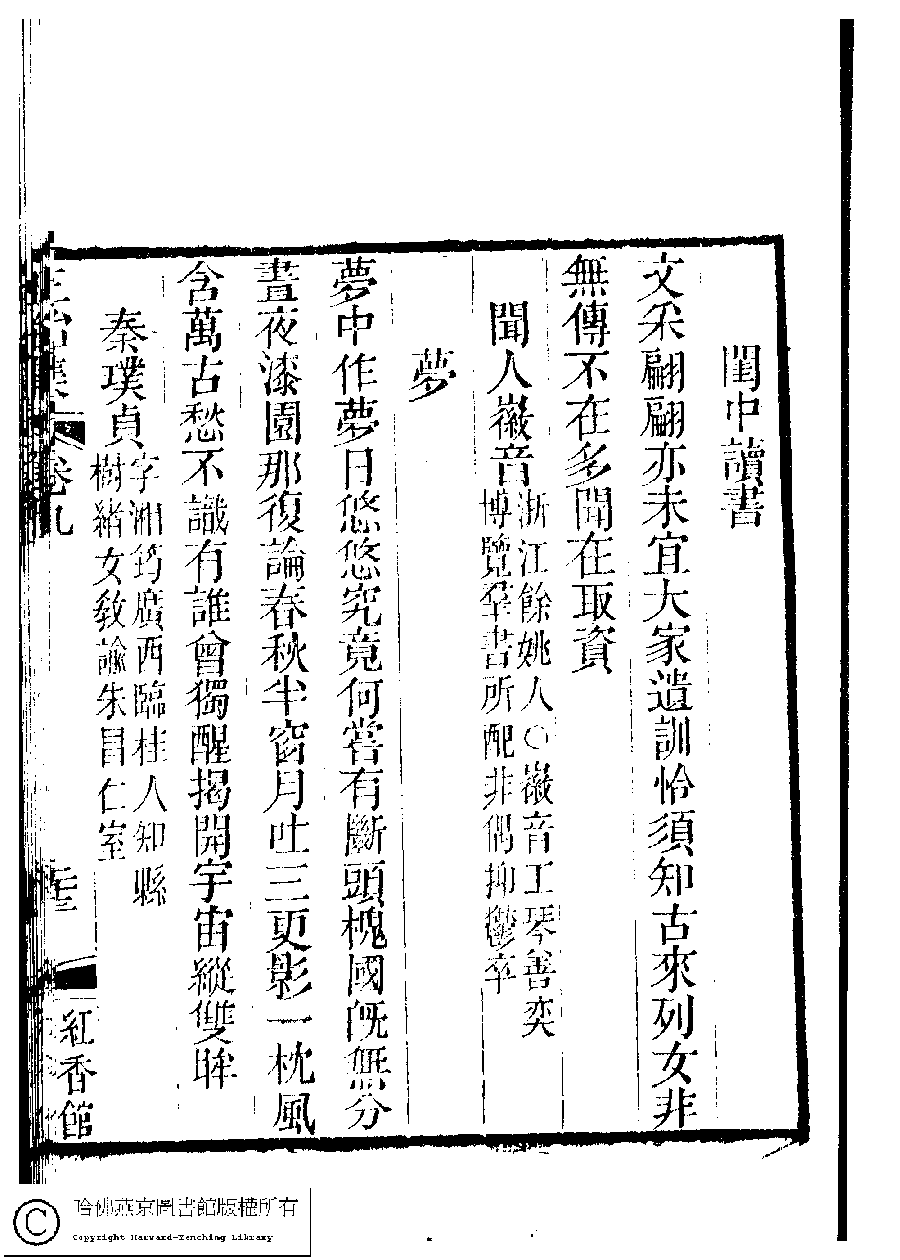 閨中讀書
文采翩翩亦未宜大家遺訓恰須知古來列女非
無傳不在多聞在取資
聞人徽音浙江餘姚人○徽音工琴善奕
博覽羣書所配非偶抑鬱卒
夢
夢中作夢日悠悠究竟何嘗有斷頭槐國旣無分
晝夜漆園那復論春秋半窗月吐三更影一枕風
含萬古愁不識有誰曾獨醒揭開宇宙縱雙眸
秦璞貞字湘筠廣西臨桂人知縣
樹緒女敎諭朱昌仁室
集
卷九
紅香館
哈佛燕京圖書館版權所有
Copyright Harvard-Yenching Library